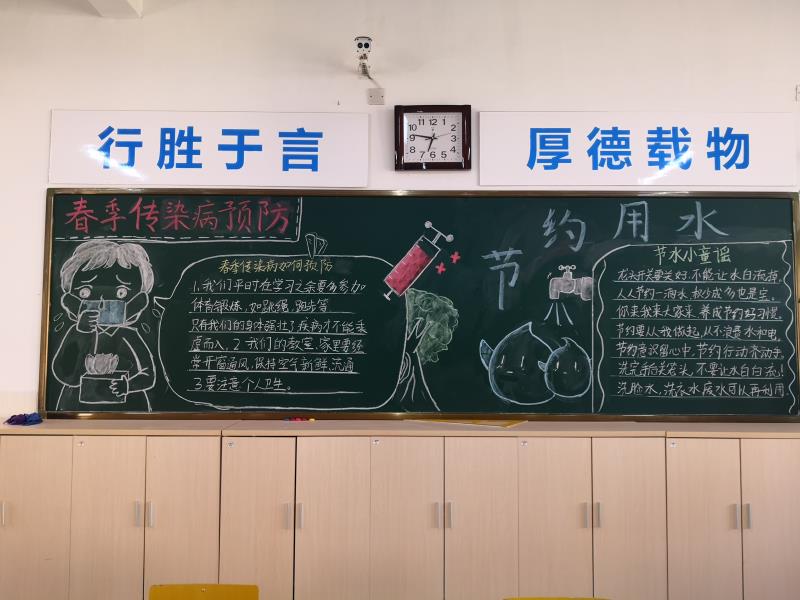 行胜于言
厚德载物
12
1
2
3
4
5
6
7
8
9
10
11
春季传染病预防
春季传染病如何预防
1、我们平时在学习之余要多参加
体育锻炼,如跳绳,跑步等
只有我们的身体强壮了疾病才不能乘
虚而入、2、我们的教室、家里要经
常开窗通风,保持空气新鲜、流通
3要注意个人卫生。
节约用水
节水小童谣
龙头开要关好,不能让水白流淌,
人人节约一滴水积少成多也是宝。
你来我来大家来养成节约好习惯,
节约要从我做起,从不浪费水和电,
节约意识留心中,节约行动齐动手
洗完手关笼头,不要让水白白流!
洗脸水,洗衣水废水可以再利用